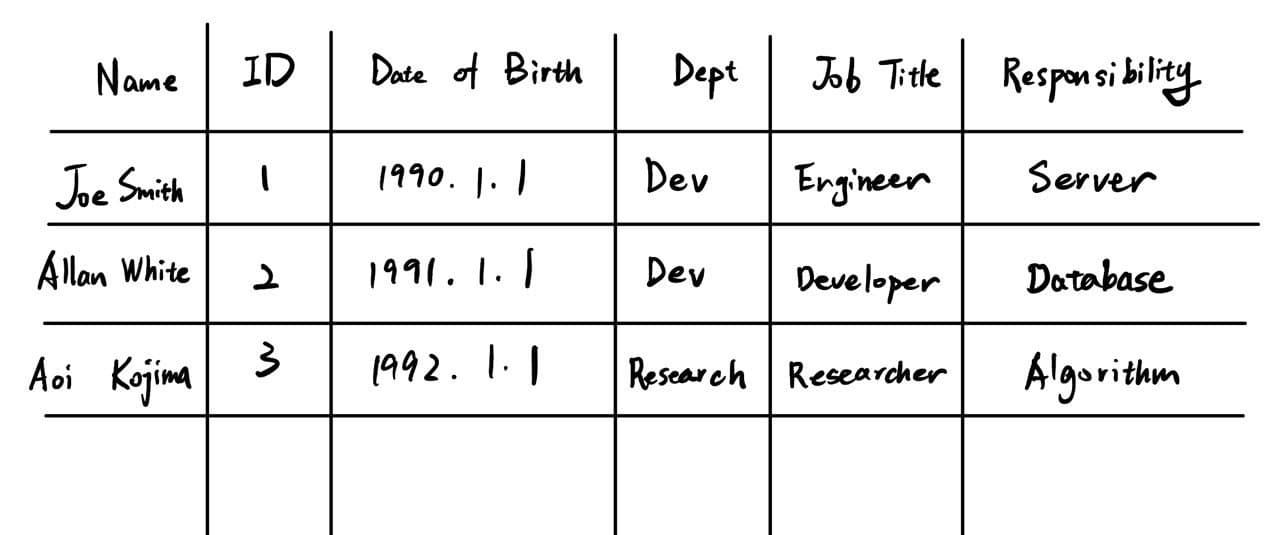 Name ID Date of Birth Dept Job Title Responsibility
Joe Smith 1 1990.1.1 Dev Engineer Server
Allan White 2 1991.1.1 Dev Developer Database
Aoi Kojima 3 1992.1.1 Research Researcher Algorithm